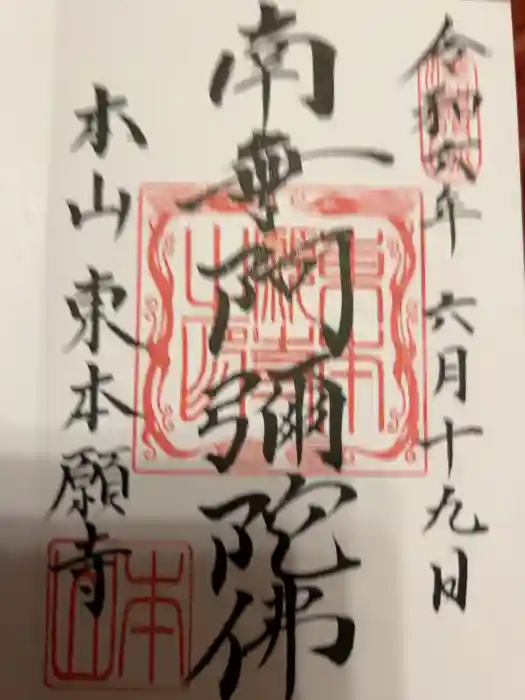 令和六年六月十九日
南無阿彌陀佛
本山東本願寺
本山